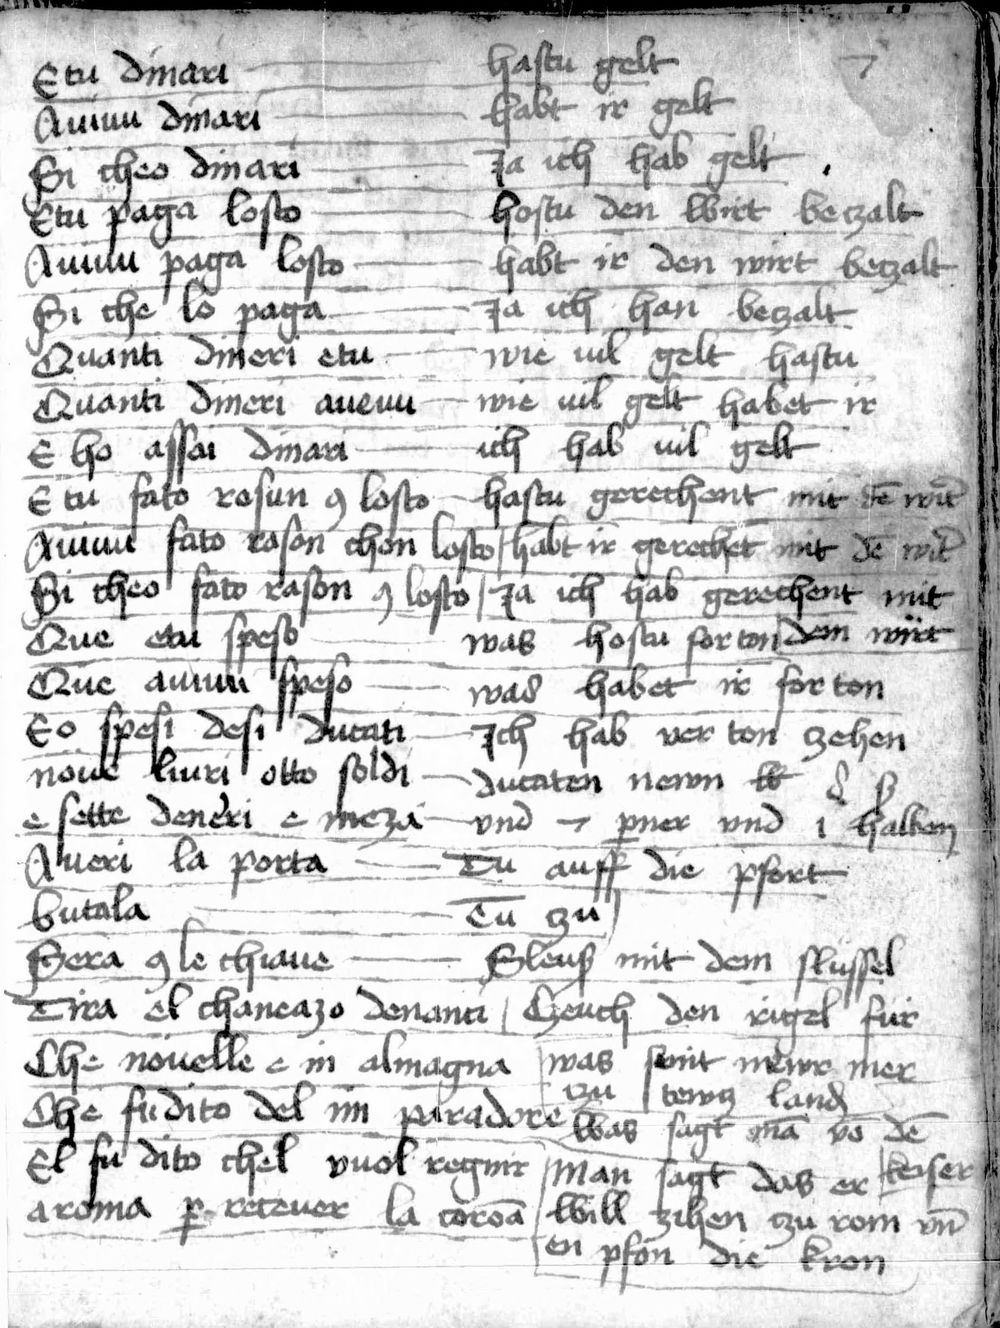 7
Etu dinari hastu gelt
Auiuu dinari habt ir gelt
Si cheo dinari Ja ich hab gelt
Etu paga losto hostu den wirt beczalt
Auiuu paga losto habt ir den wirt beczalt
Si che lo paga Ja ich han beczalt
Quanti dineri etu wie uil gelt hastu
Quanti dineri aueuu wie uil gelt habet ir
E ho assai dinari ich hab uil gelt
E tu fato rosun ꝯ losto hastu gerechent mit dē wirt
Auiuu fato rason chon losto habt ir gerechet mit dē wirt
Si cheo fato rason ꝯ losto Ja ich hab gerechent mit
Que etu speso was hostu for ton dem wirt
Que auiuu speso was habet ir for ton
Eo spesi desi ducati Ich hab ver ton czehen
noue liuri otto soldi ducaten newn
e sette deneri e meza vnd 7 pner vnd 1 halben
Aueri la porta Tu auff die pfort
butala Tu czu
Sera ꝯ le chiaue Sleus mit dem slussel
Tira el chaneazo denanti Czeuch den rigel fur
Che nouelle e in almagna was sint newr mer
zu tewcz land
Che fu dito del im paradore Was sagt mā vō dē
keiser
El fu dito chel vuol regnir Man sagt das er
a roma ꝑ receuer la coroā Will zihen czu rom vn̄
en pfon die kron